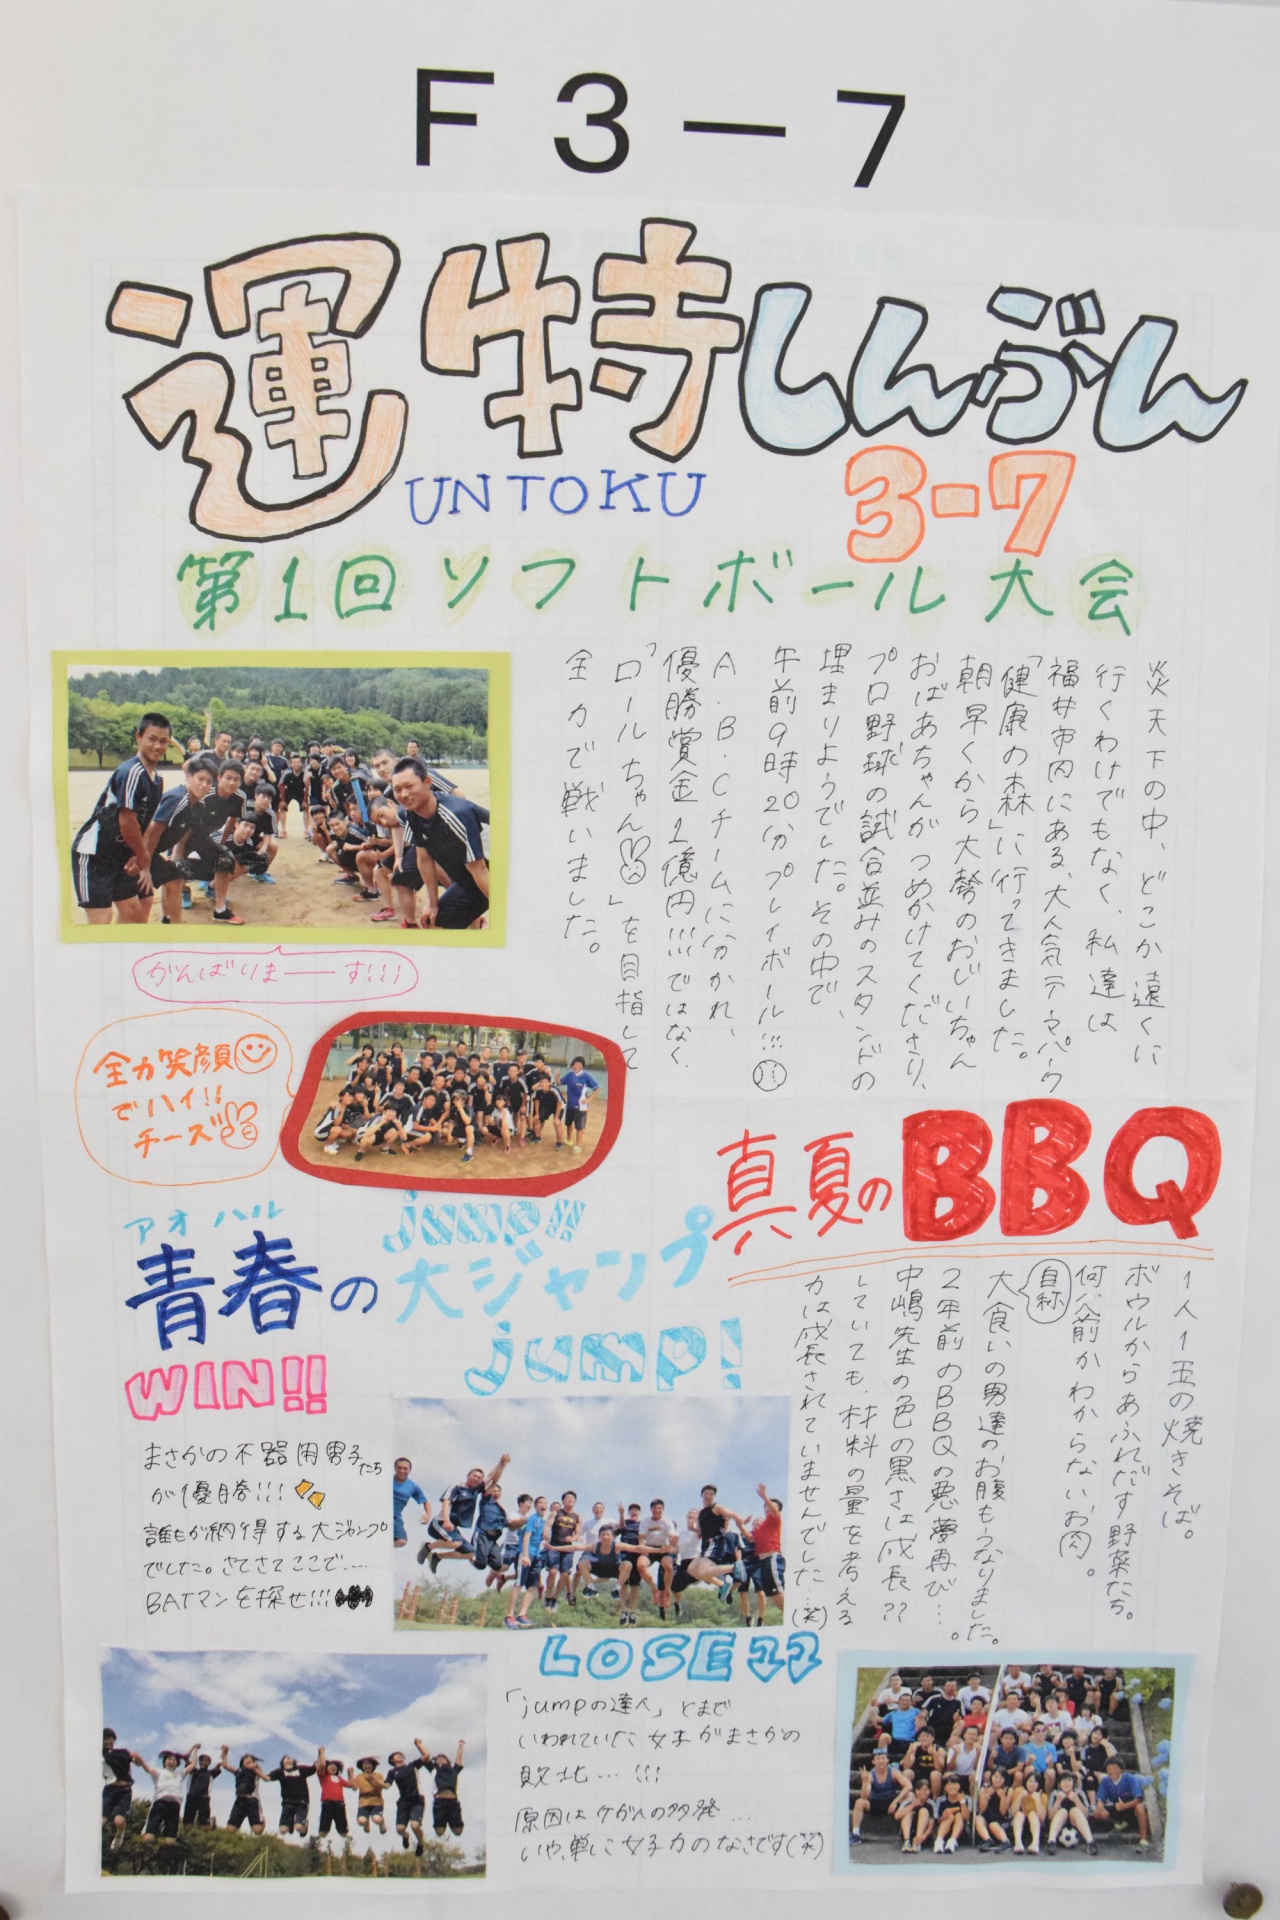 F3-7
運特しんぶん
UNTOKU
3-7
第1回ソフトボール大会
炎天下の中、どこか遠くに
行くわけでもなく、私達は
福井市内にある、大人気テーマパーク
「健康の森」に行ってきました。
朝早くから大勢のおじいちゃん
おばあちゃんがつめかけてくださり、
プロ野球の試合並みのスタンドの
埋まりようでした。その中で、
午前9時20分プレイボール!!!
A・B・Cチームに分かれ、
優勝賞金1億円!!!ではなく
「ロールちゃん」を目指して
全力で戦いました。
がんばりまーーす!!!
全力笑顔
でハイ!!
チーズ
真夏のBBQ
1人1玉の焼きそば。
ボウルからあふれだす野菜たち。
何人前かわからないお肉。
自称
大食いの男達のお腹もうなりました。
2年前のBBQの悪夢再び…。
中嶋先生の色の黒さは成長??
していても、材料の量を考える
力は成長されていませんでした…(笑)
アオハル
青春の
jump!!
大ジャンプ
jump!
WIN!!
まさかの不器用男子たち
が優勝!!!
誰もが納得する大ジャンプ
でした。さてさてここで……
BATマンを探せ!!!
LOSE
「jumpの達人」とまで
いわれていた女子がまさかの
敗北…!!!
原因はケガ人の多発…
いや、単に女子力のなさです(笑)